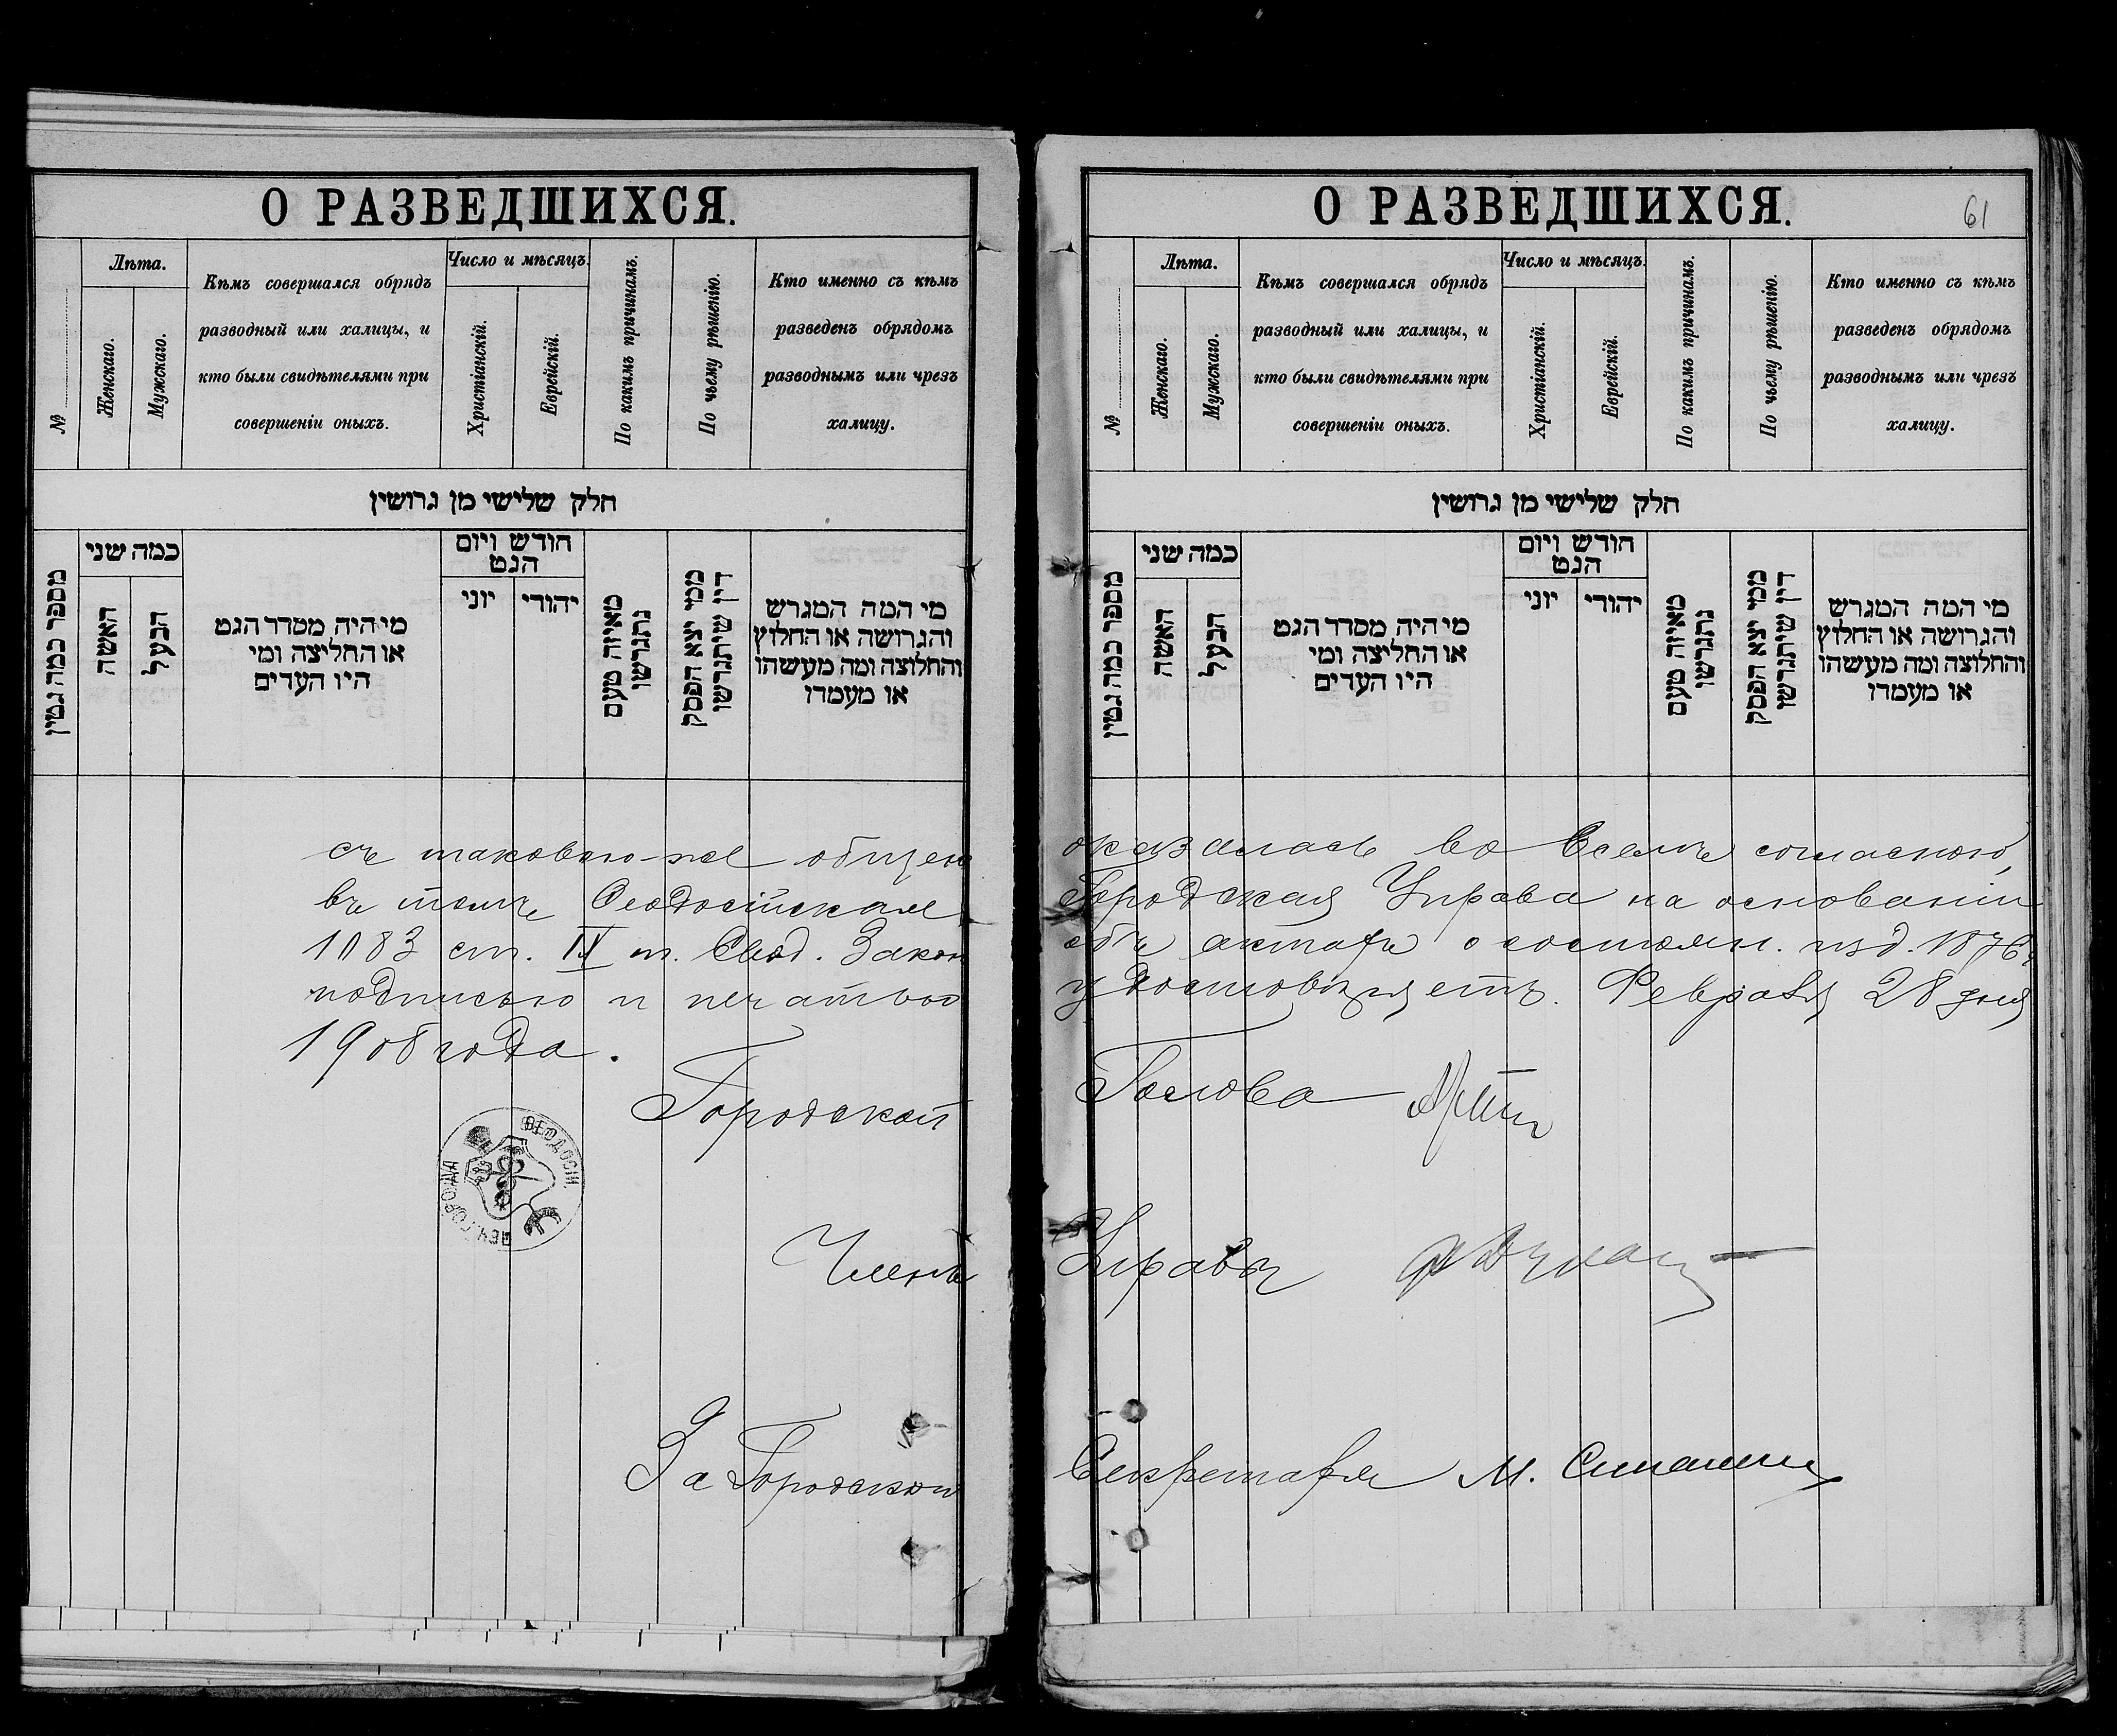 О РАЗВЕДШИХСЯ.
№
Лѣта.
Женскаго.
Мужскаго.
Кѣмъ совершался обрядъ
разводный или халицы, и
кто были свидѣтелями при
совершеніи оныхъ.
Число и мѣсяцъ.
Христіанскій.
Еврейскій.
По какимъ причинамъ.
По чьему рѣшенію.
Кто именно съ кѣмъ
разведенъ обрядомъ
разводнымъ или чрезъ
халицу.
חלק שלישי מן גרושין
מספר כמה גטין
כמה שני
האשה
הבעל
מי היה מסדר הגט
או החליצה ומי
היו העדים
חודש ויום
הגט
יוני
יהודי
מאיזה טעם
נתגרשו
ממי יצא הפסק
דין שיתגרשו
מי המה המגרש
והגרושה או החלוץ
והחלוצה ומה מעשהו
או מעמדו
съ таковою-же общею
въ томъ Ѳеодосійская
1083 ст. IX т. Свод. Закон
подписью и печатью
1908 года.
Городской
ПЕЧ. ГОРОДА ѲЕОДОСІИ
Членъ
За Городского
О РАЗВЕДШИХСЯ.
61
№
Лѣта.
Женскаго.
Мужскаго.
Кѣмъ совершался обрядъ
разводный или халицы, и
кто были свидѣтелями при
совершеніи оныхъ.
Число и мѣсяцъ.
Христіанскій.
Еврейскій.
По какимъ причинамъ.
По чьему рѣшенію.
Кто именно съ кѣмъ
разведенъ обрядомъ
разводнымъ или чрезъ
халицу.
חלק שלישי מן גרושין
מספר כמה גטין
כמה שני
האשה
הבעל
מי היה מסדר הגט
או החליצה ומי
היו העדים
חודש ויום
הגט
יוני
יהודי
מאיזה טעם
נתגרשו
ממי יצא הפסק
דין שיתגרשו
מי המה המגרש
והגרושה או החלוץ
והחלוצה ומה מעשהו
או מעמדו
оказалась во всемъ согласною,
Городская Управа на основаніи
объ актахъ о состоян. изд. 1876 г
удостовѣряетъ. Февраля 28 дня
Голова
Управы
Секретаря М.